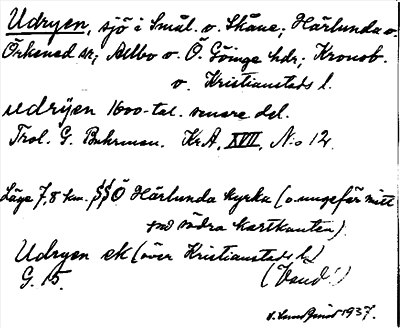 Udryen, sjö i Smål. o. Skåne; Härlunda o.
Örkened sr; Allbo o. Ö. Göinge hdr; Kronob.
o. Kristianstads l.
udrÿen 1600-tal. senare del.
Trol. G. Buhrman. KrA, XVII, No 12.
Läge 7,8 km. SSÖ Härlunda kyrka (o. ungefär mitt
på södra kartkanten).
Udryen ek (över Kristianstads l.)
G. 15.
1937.